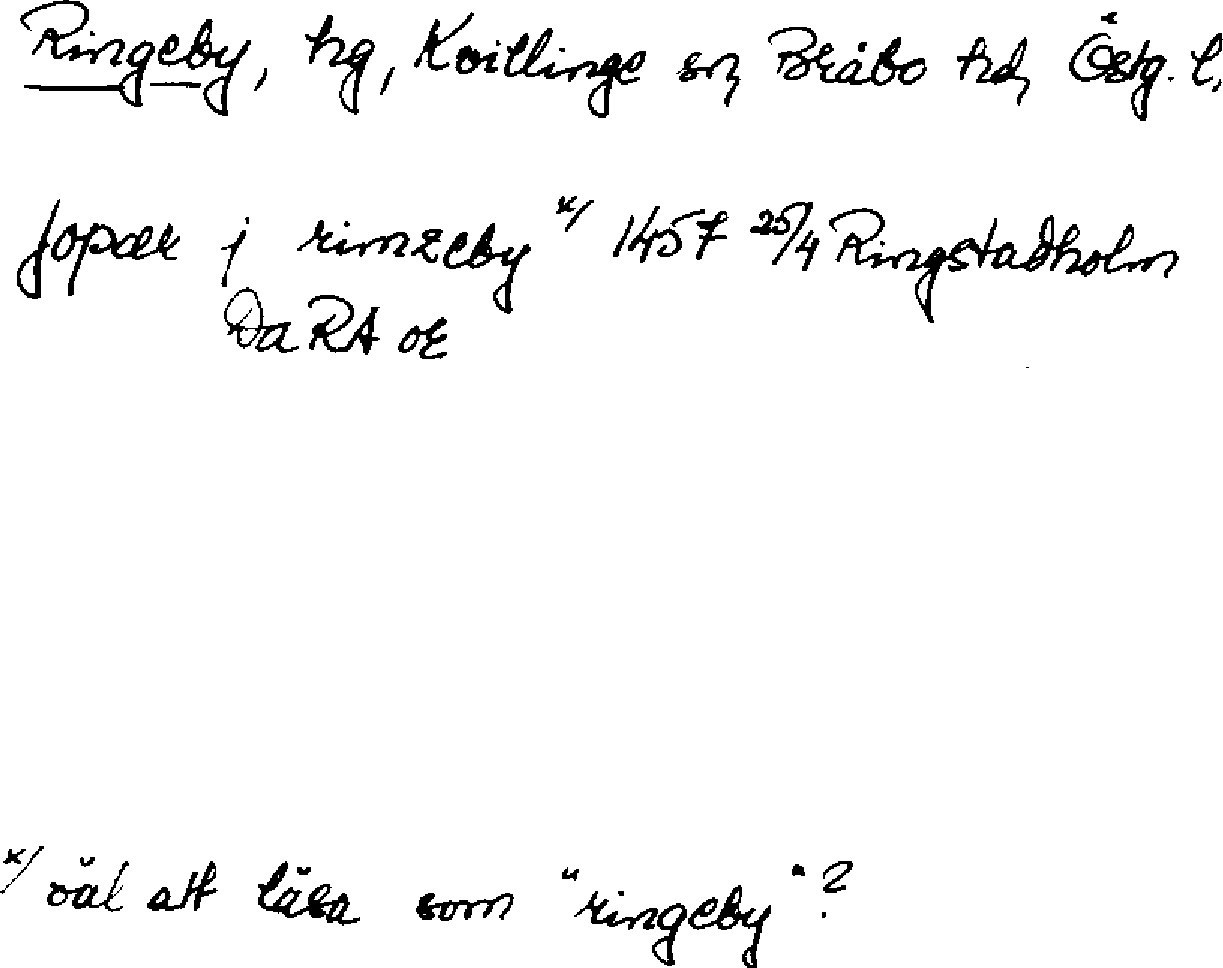 Ringeby, hg, Kvillinge sn, Bråbo hd, Östg. l.
jopær j rimzeby x/ 1457 25/4 Ringstadholm
Da RA or
x/ väl att läsa som "ringeby"?